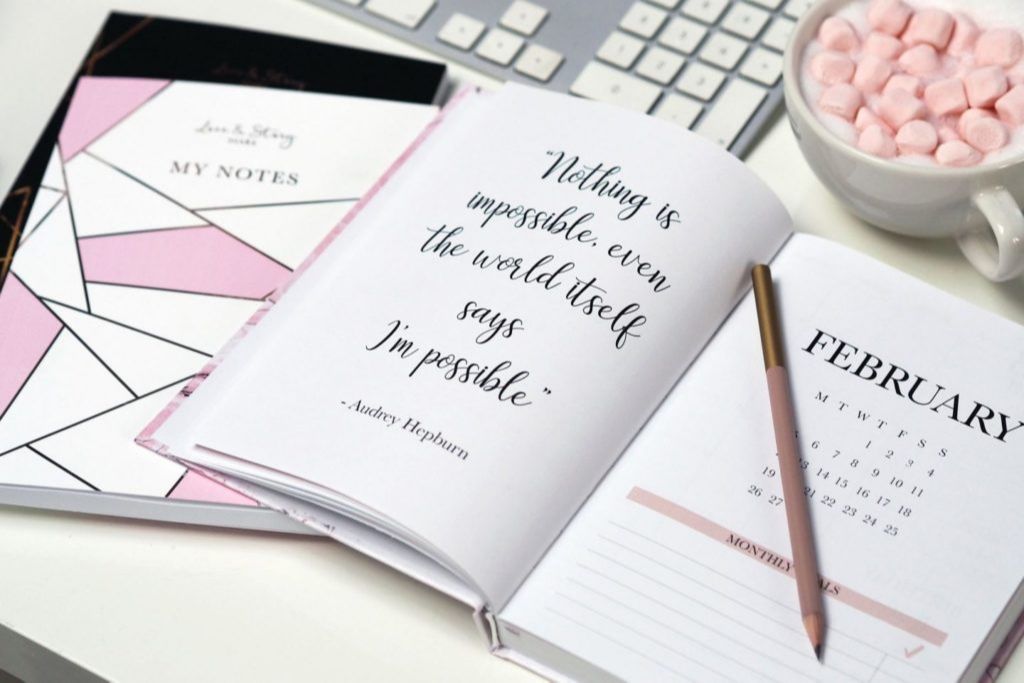 MY NOTES
"Nothing is
impossible, even
the world itself
says
I'm possible"
- Audrey Hepburn
FEBRUARY
M T W T F S S
1 2 3 4
6 7 8 9 10 11
13 14 15 16 17 18
19 21 22 23 24 25
26 27
MONTHLY